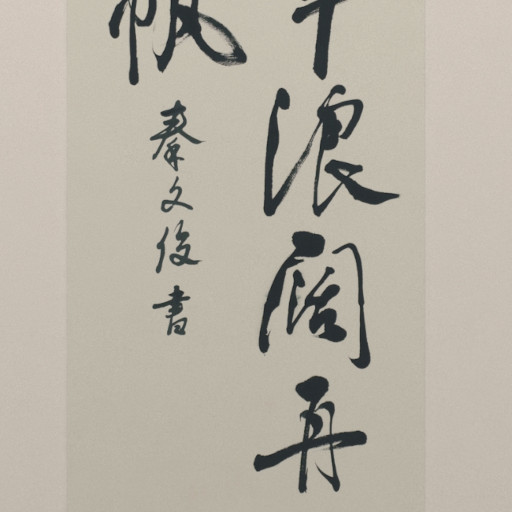 平浪阔再
帆
秦文俊書